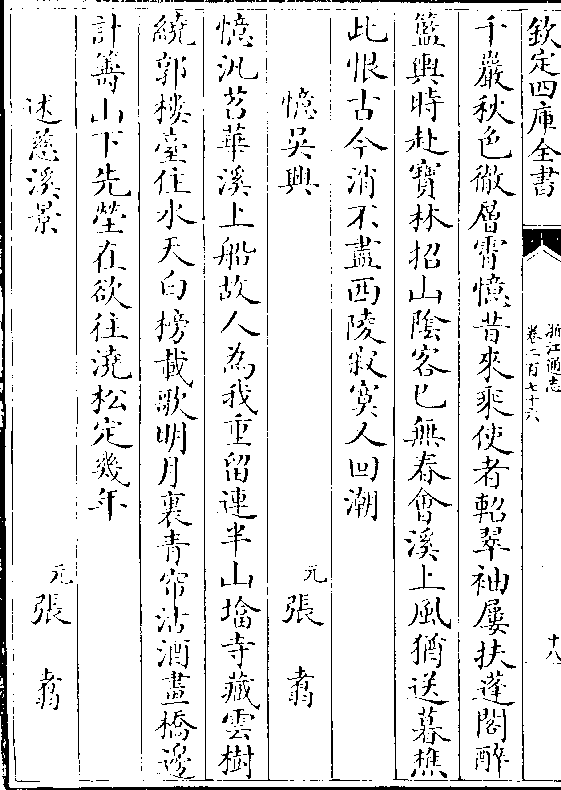 欽定四庫全書
浙江通志
卷二百七十六
十八
千巖秋色徹層霄憶昔來乘使者軺翠袖屢扶蓬閣醉
籃輿時赴寶林招山陰客已無春會溪上風猶送暮樵
此恨古今消不盡西陵寂寞人回潮
憶吳興
元
張翥
憶汎苕華溪上船故人為我重留連半山墖寺藏雲樹
繞郭樓臺住水天白榜載歌明月裏青帘沽酒畫橋邊
計籌山下先塋在欲往澆松定幾年
述慈溪景
元
張翥